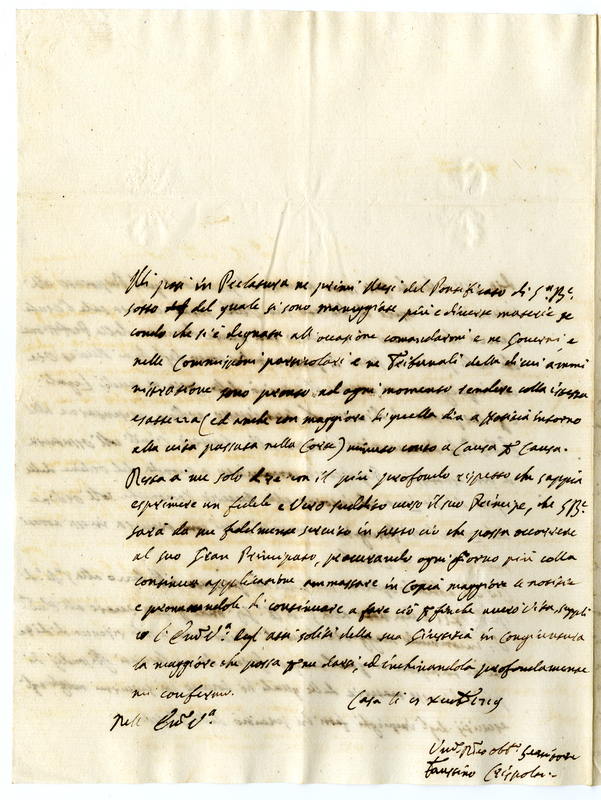 Mi posi in Prelatura ne primi Mesi del Pontificato di S.ª B.e
sotto del quale si sono maneggiate più e diverse materie se
condo che si è degnata all'occasione comandarmi e ne Governi, e
nelle Commissioni particolari e ne Tribunali della di cui ammi
nistrazione sono pronto ad ogni momento rendere colla istessa
esattezza (ed anche con maggiore di quella dia a notitia intorno
alla vita passata nella Corte) minuto conto a Causa p Causa.
Resta a me solo dire con il più profondo rispetto che sappia
esprimere un fedele e vero suddito verso il suo Principe, che S B.e
sarà da me fedelmente servito in tutto ciò che possa occorrere
al suo Gran Principato, procurando ogni giorno più colla
continua applicazione ammassare in Copia maggiore le notitie
e promettendole di continuare a fare ciò finche averò vita, suppli
co l' Em.ª V.ª degl'atti soliti della sua Giustitia in Congiuntura
la maggiore che possa darsi, ed inchinandola profondamente
mi confermo.
Casa li 1719
Dell' Em.ª V.ª
obb.o Servitore
Faustino Crispolti